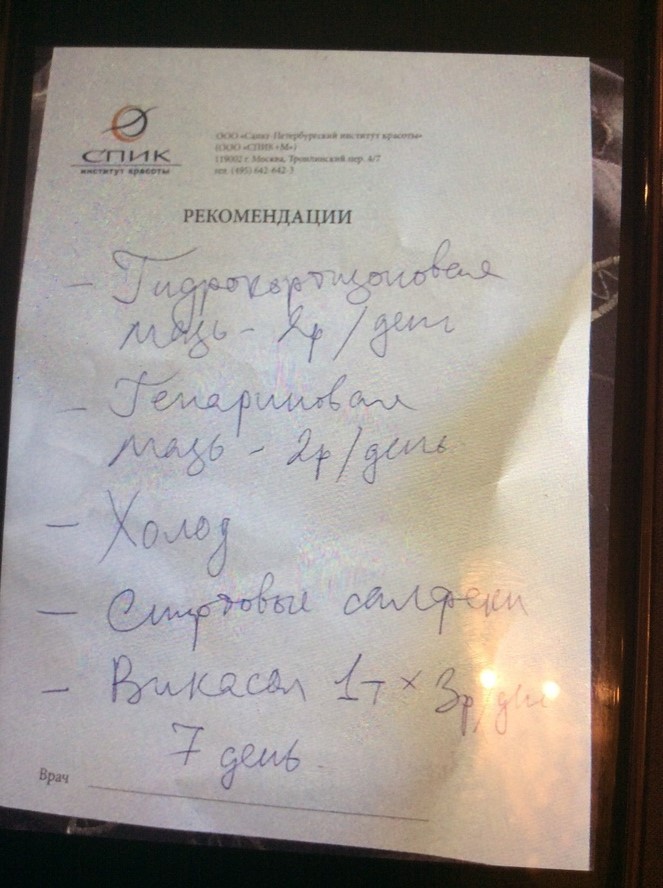 СПИК
институт красоты
ООО «Санкт-Петербургский институт красоты»
(ООО «СПИК+М»)
119002 г. Москва, Тропининский пер. 4/7
тел. (495) 642-642-3
РЕКОМЕНДАЦИИ
- Гидрокортизоновая
мазь - 2р/день
- Гепариновая
мазь - 2р/день
- Холод
- Спиртовые салфетки
- Викасол 1т × 3р/день
7 день
Врач